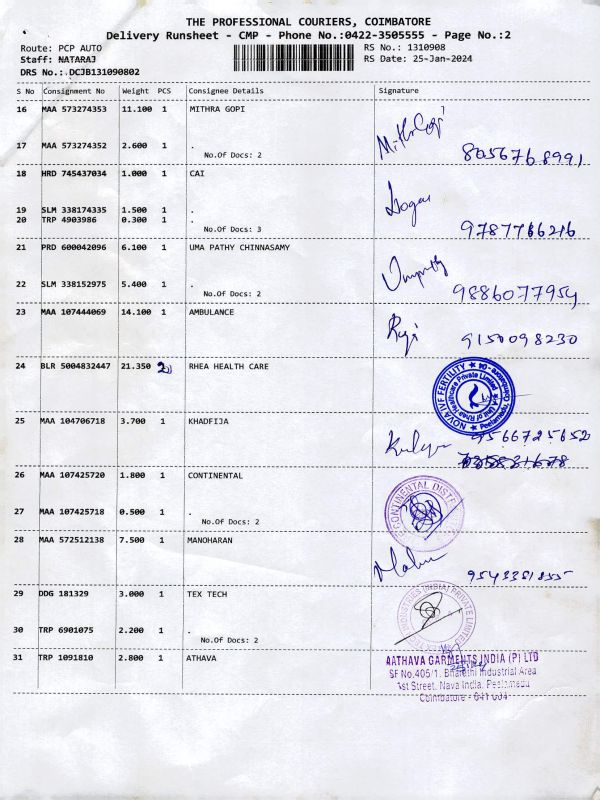 THE PROFESSIONAL COURIERS, COIMBATORE
Delivery Runsheet - CMP - Phone No.:0422-3505555 - Page No.:2
Route: PCP AUTO RS No.: 1310908
Staff: NATARAJ RS Date: 25-Jan-2024
DRS No.: DCJB131090802
S No Consignment No Weight PCS Consignee Details Signature
16 MAA 573274353 11.100 1 MITHRA GOPI
17 MAA 573274352 2.600 1 .
No.Of Docs: 2 8056768991
18 HRD 745437034 1.000 1 CAI
19 SLM 338174335 1.500 1 .
20 TRP 4903986 0.300 1 .
No.Of Docs: 3 9787766216
21 PRD 600042096 6.100 1 UMA PATHY CHINNASAMY
22 SLM 338152975 5.400 1 .
No.Of Docs: 2 9886077954
23 MAA 107444069 14.100 1 AMBULANCE
9150098230
24 BLR 5004832447 21.350 2 RHEA HEALTH CARE
NOVA IVF FERTILITY
A Unit of Rhea Healthcare Private Limited
Peelamedu, Coimbatore - 04
25 MAA 104706718 3.700 1 KHADFIJA
9566725652
26 MAA 107425720 1.800 1 CONTINENTAL
27 MAA 107425718 0.500 1 .
No.Of Docs: 2
28 MAA 572512138 7.500 1 MANOHARAN
29 DDG 181329 3.000 1 TEX TECH
30 TRP 6901075 2.200 1 .
No.Of Docs: 2
31 TRP 1091810 2.800 1 ATHAVA
AATHAVA GARMENTS INDIA (P) LTD
SF No.405/1, Bharathi Industrial Area
1st Street, Nava India, Peelamedu
Coimbatore - 641 004